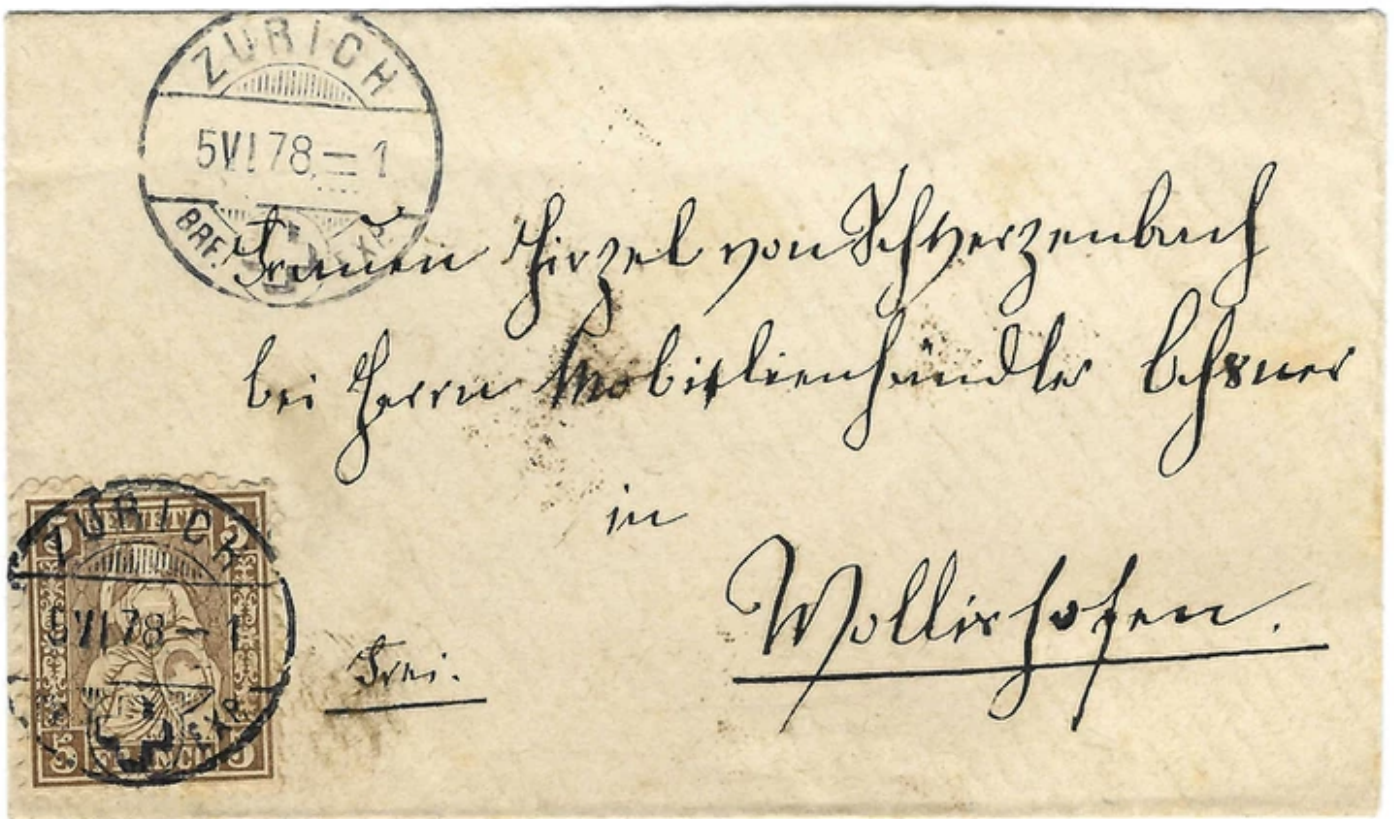 ZÜRICH
5 VI 78. – 1
BRF. EXP.
Frauen Hirzel von Schwerzenbach
bei Herrn Mobilienhändler Ochsner
in
Wollishofen.
Frei.
5 HELVETIA 5
ZÜRICH
VI 78 – 1
EXP.
5 FRANCO 5